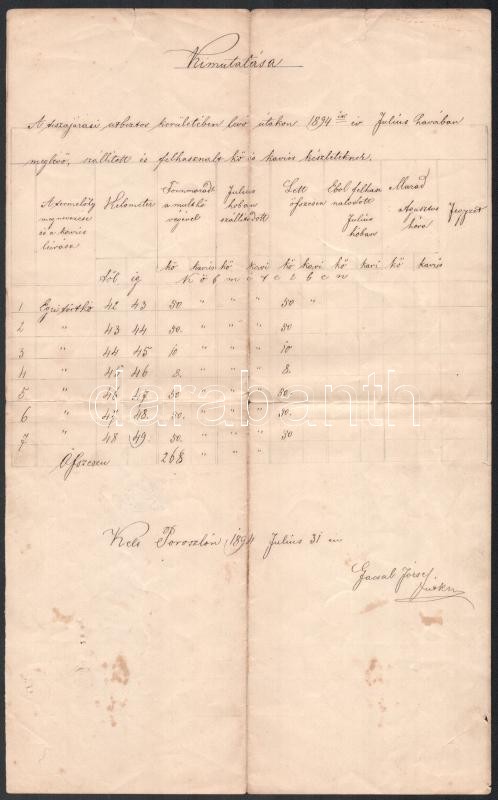 Kimutatása
A tiszajárási utbiztos kerületében lévő útakon 1894 ik év Julius havában
meglévő, szállított és felhasznált kő és kavics készletéknek.
A termelőly megnevezése és a kavics leirása Kilométer Fennmaradt a mult hó végével Julius hóban szállítódott Lett öfszesen Ebol felhasználodott Julius hóban Marad Augusztus hóra Jegyzet
kő kavics kő kavi kő kavi kő kavi kő kavics
től ig Köbméterben
1 Egri tört kő 42 43 50 " " " 50 "
2 " 43 44 50. " " " 50
3 " 44 45 10 " " " 10
4 " 45 46 8. " " " 8.
5 " 46 47 50 " " " 50.
6 " 47 48. 50. " " " 50.
7 " 48 49. 50. " " " 50
Öfszesen 268 " " "
darabanth
Kelt Poroszlón 1894 Julius 31 én
Gacsal József